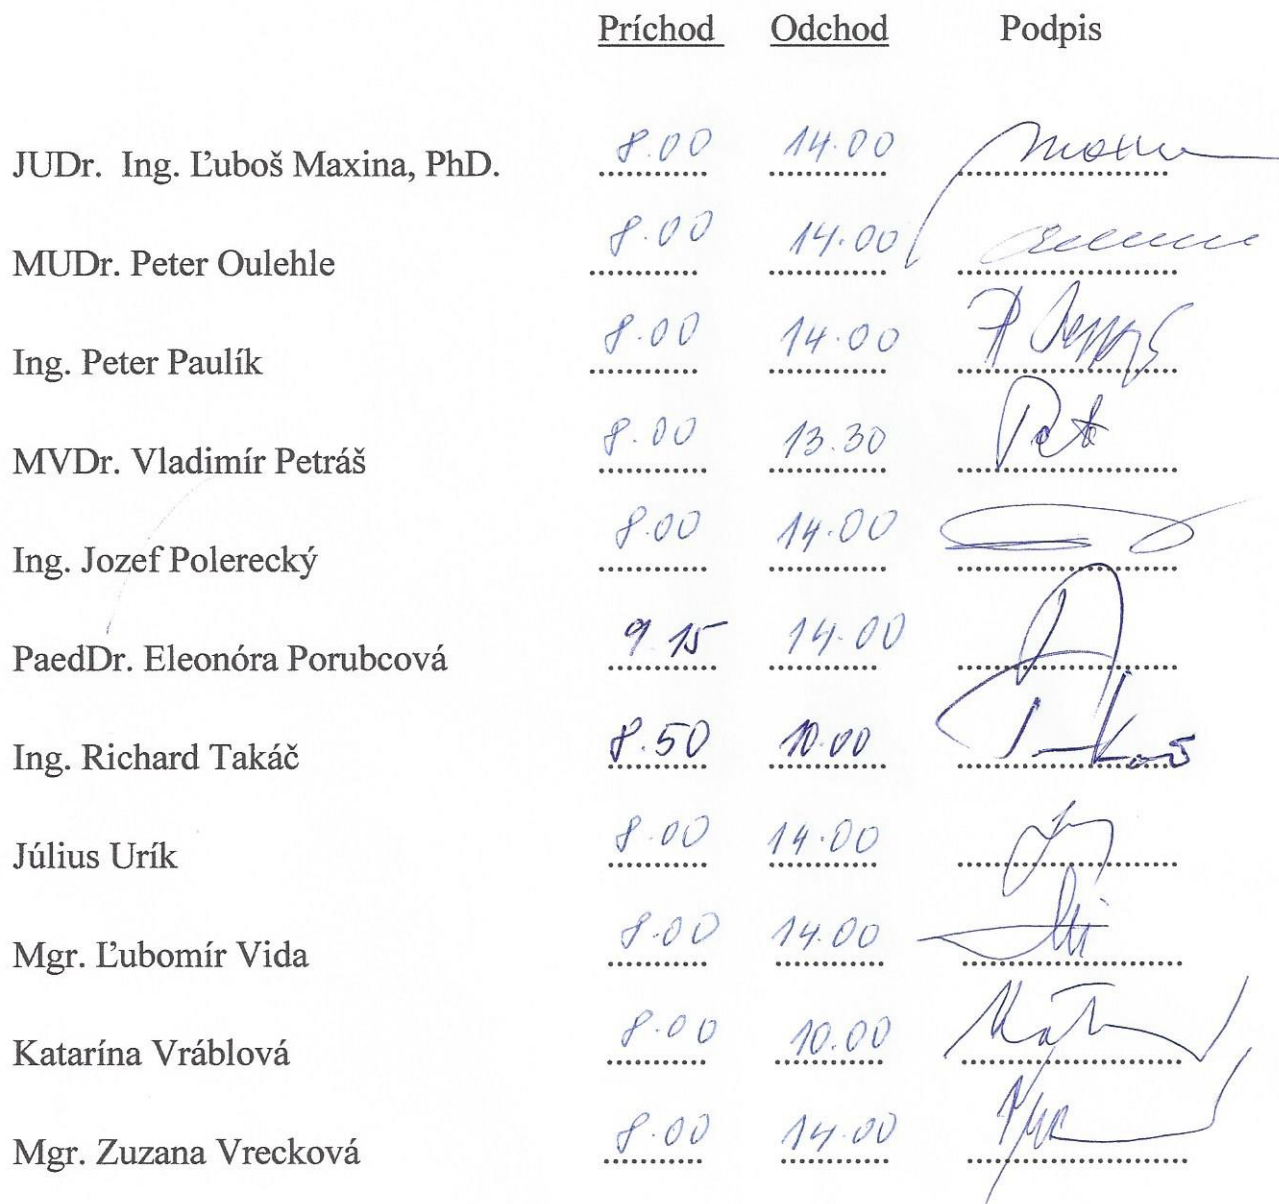 Príchod Odchod Podpis
JUDr. Ing. Ľuboš Maxina, PhD. 8.00 14.00
MUDr. Peter Oulehle 8.00 14.00
Ing. Peter Paulík 8.00 14.00
MVDr. Vladimír Petráš 8.00 13.30
Ing. Jozef Polerecký 8.00 14.00
PaedDr. Eleonóra Porubcová 9.15 14.00
Ing. Richard Takáč 8.50 10.00
Július Urík 8.00 14.00
Mgr. Ľubomír Vida 8.00 14.00
Katarína Vráblová 8.00 10.00
Mgr. Zuzana Vrecková 8.00 14.00